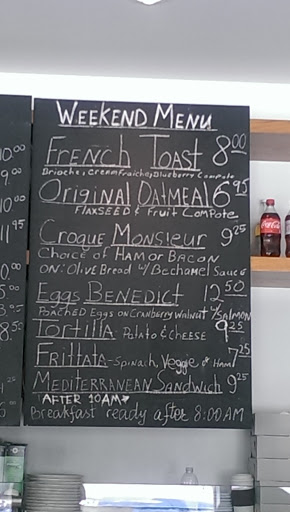 WEEKEND MENU
FRENCH TOAST 8.00
Brioche, Cremefraiche, Blueberry Compote
ORIGINAL OATMEAL 6.95
FLAXSEED & Fruit Compote
CROQUE MONSIEUR 9.25
CHOICE OF HAM OR BACON
ON: OLIVE BREAD w/ Bechamel Sauce
EGGS BENEDICT 12.50
POACHED EGGS ON CRANBERRY WALNUT w/ SALMON
TORTILLA: POTATO & CHEESE 9.25
FRITTATA - SPINACH, VEGGIE & HAM 7.25
MEDITERRANEAN SANDWICH 9.25
*AFTER 10AM*
Breakfast ready after 8:00AM
10.00
9.00
10.00
11.95
8.50
Coca-Cola